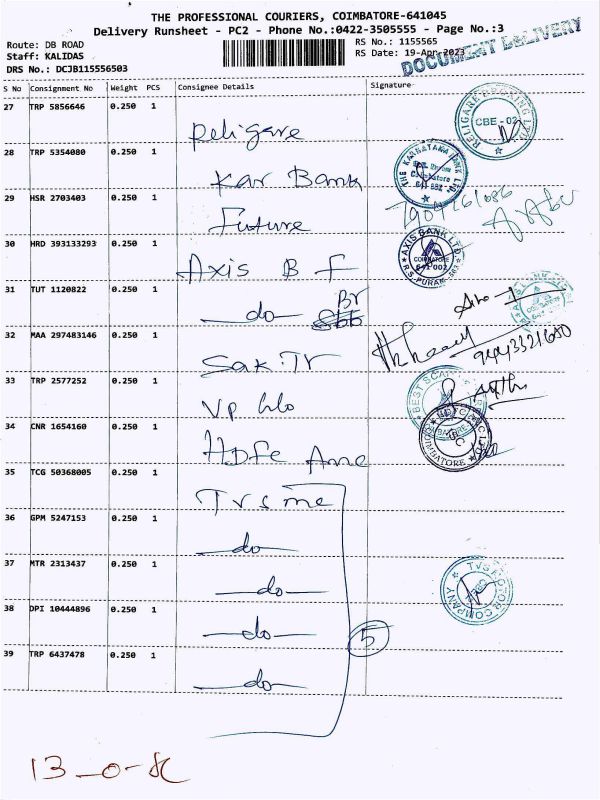 THE PROFESSIONAL COURIERS, COIMBATORE-641045
Delivery Runsheet - PC2 - Phone No.:0422-3505555 - Page No.:3
Route: DB ROAD
Staff: KALIDAS
DRS No.: DCJB115556503
RS No.: 1155565
RS Date: 19-Apr-2023
DOCUMENT DELIVERY
S No Consignment No Weight PCS Consignee Details Signature
27 TRP 5856646 0.250 1 Religare
RELIGARE BROKING LTD
CBE - 02
28 TRP 5354080 0.250 1 Kar Bank
THE KARNATAKA BANK LTD.
Coimbatore
29 HSR 2703403 0.250 1 Future
30 HRD 393133293 0.250 1 Axis B F
AXIS BANK LTD
COIMBATORE
641 002
R.S. PURAM
31 TUT 1120822 0.250 1 do Br
32 MAA 297483146 0.250 1 Sak. Tr
9443321600
33 TRP 2577252 0.250 1 Vp
BEST
34 CNR 1654160 0.250 1 HDFC Amc
COIMBATORE
35 TCG 50368005 0.250 1 Tvs mc
36 GPM 5247153 0.250 1 do
37 MTR 2313437 0.250 1 do
TVS MOTOR COMPANY
38 DPI 10444896 0.250 1 do
5
39 TRP 6437478 0.250 1 do
13-0-